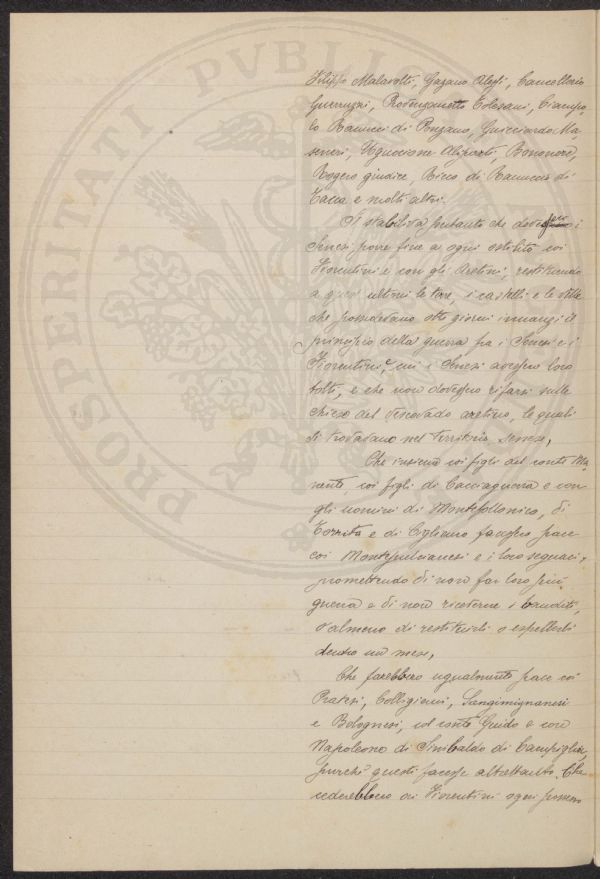 Filippo Malavolti, Gazano Alessi, Cancellerio
Guerruzzi, Provenzanetto Tolosani, Ciampo-
lo Ranucci di Ponzano, Guicciardo Ma-
seneri, Uguccione Aliparti, Bononore,
Rogero giudice, Ricco di Ranuccio di
Tacca e molti altri.
Si stabiliva pertanto che dovessero i
Senesi porre fine a ogni ostilità coi
Fiorentini e con gli Aretini, restituendo
a questi ultimi le torri, i castelli e le ville
che possedevano otto giorni innanzi il
principio della guerra fra i Senesi e i
Fiorentini, e cui i Senesi avessero loro
tolti, e che non dovessero rifarsi sulle
chiese del Vescovado aretino, le quali
si trovavano nel territorio senese,
Che insieme coi figli del conte Ma-
nente, coi figli di Cacciaguerra e con
gli uomini di Montefollonico, di
Torrita e di Ciglieno facessero pace
coi Montepulcianesi e i loro seguaci,
promettendo di non far loro più
guerra e di non ricettarne i banditi,
o almeno di restituirli o espellerli
dentro un mese,
Che farebbero ugualmente pace coi
Pratesi, Colligiani, Sangimignanesi
e Bolognesi, col conte Guido e con
Napoleone di Sinibaldo di Campiglia,
purchè questi facesse altrettanto. Che
cederebbero ai Fiorentini ogni possesso
PROSPERITATI PVBLICAE